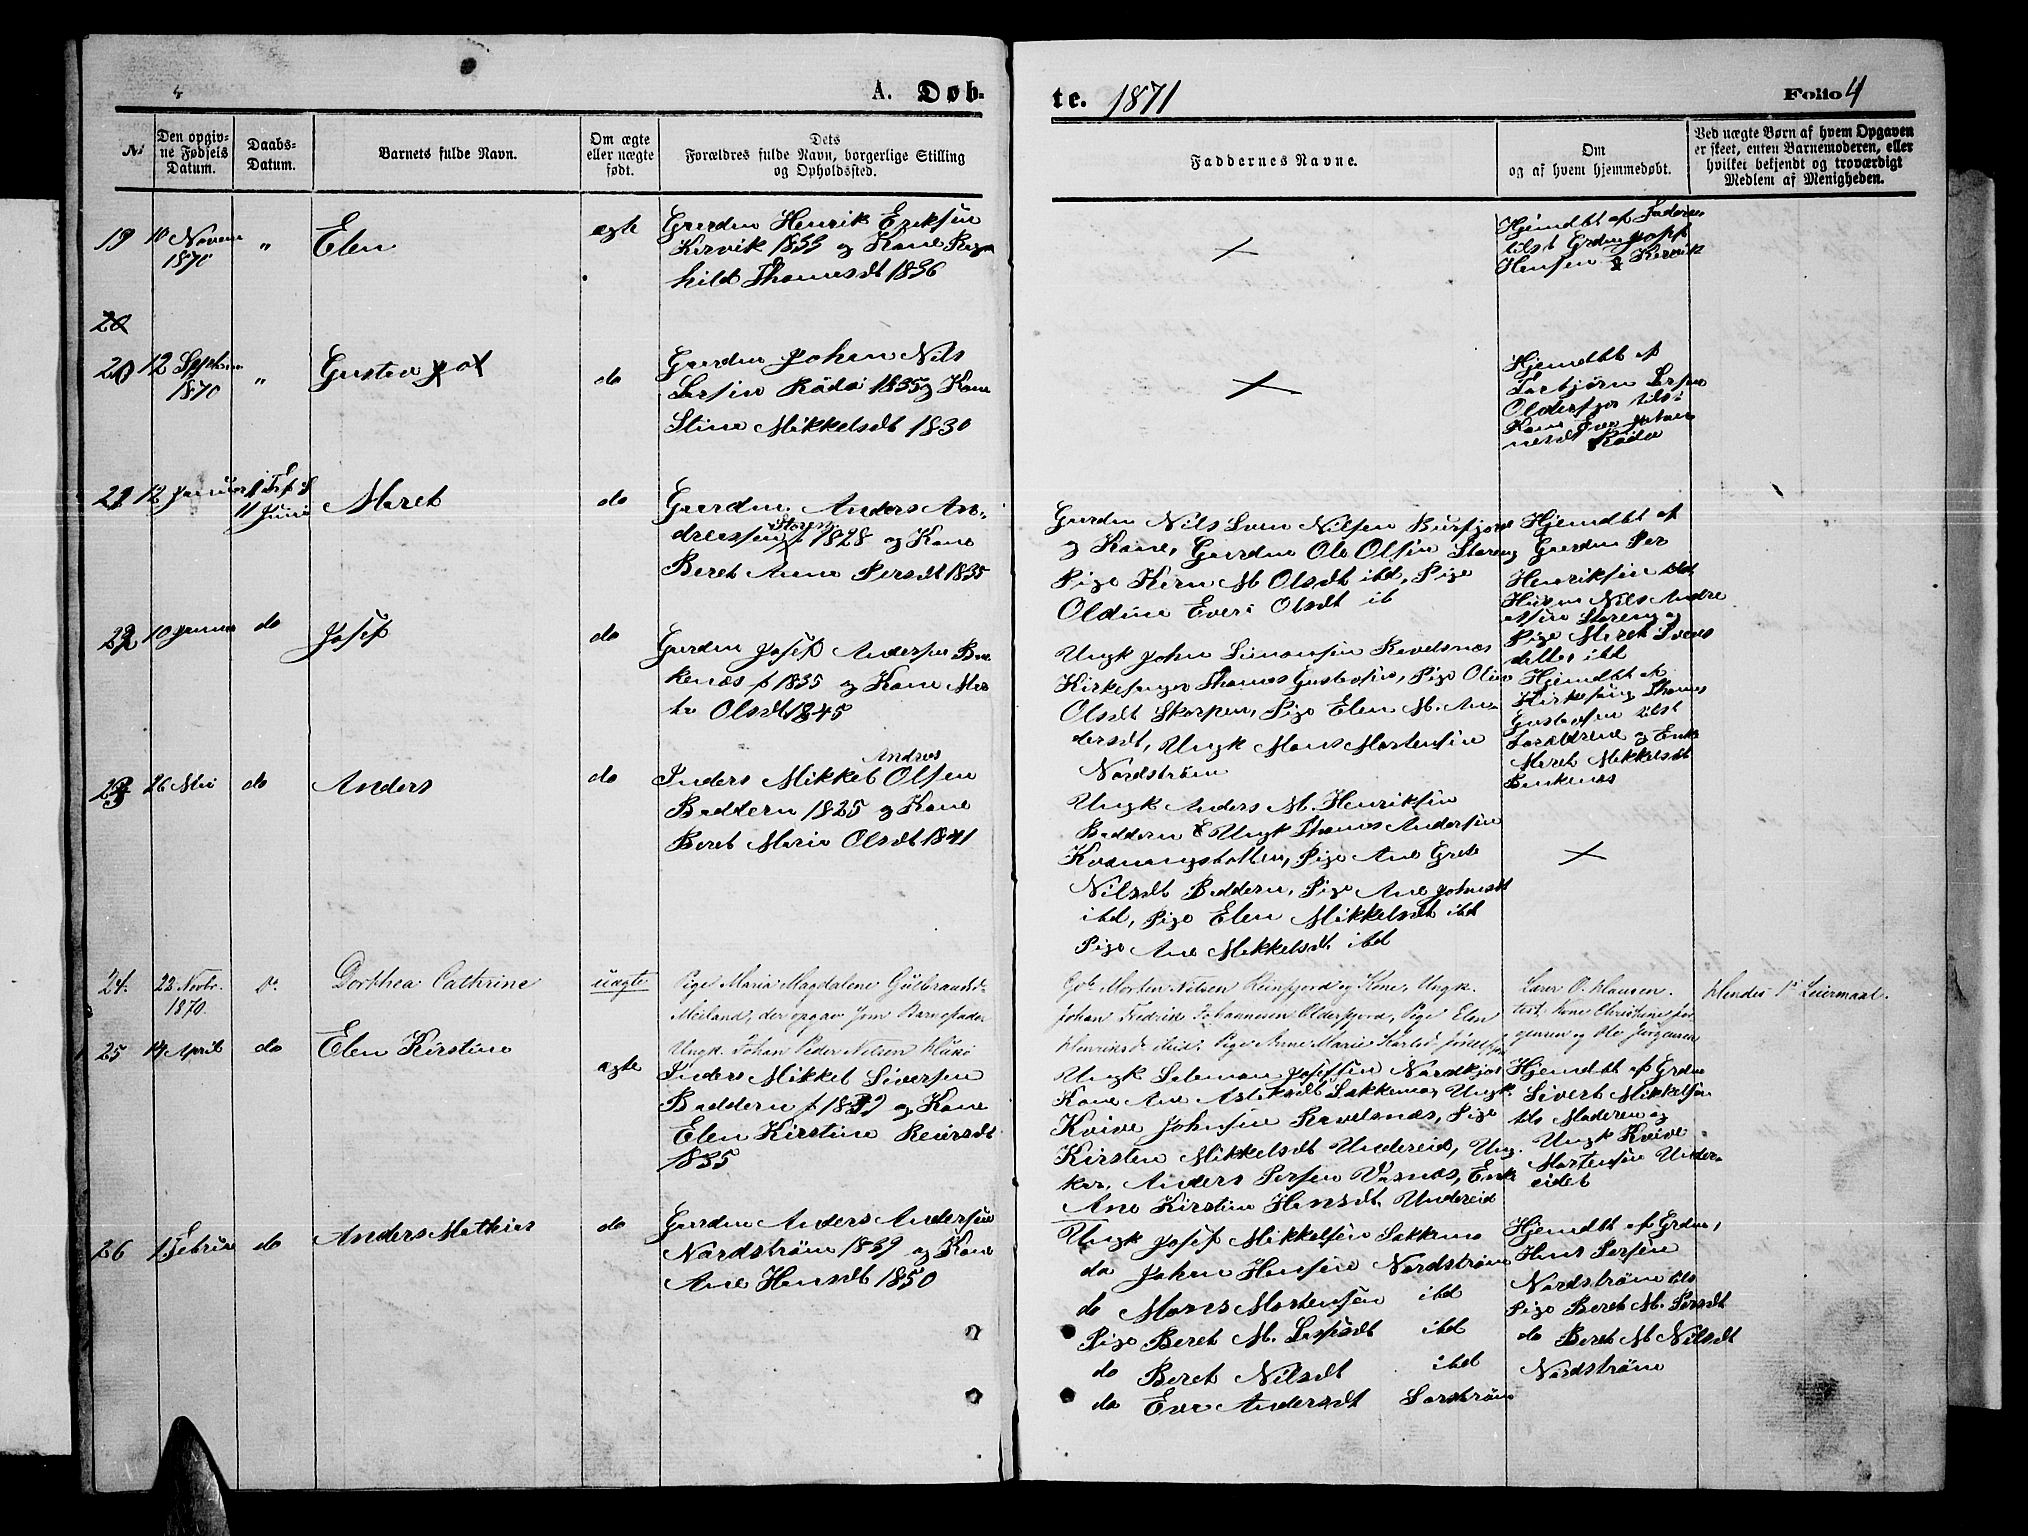 4
A. Døb-
te. 1871
Folio 4
No
Den opgiv-
ne Fødsels
Datum.
Daabs-
Datum.
Barnets fulde Navn.
Om ægte
eller uægte
født.
Dets
Forældres fulde Navn, borgerlige Stilling
og Opholdssted.
Faddernes Navne.
Om
og af hvem hjemmedøbt.
Ved uægte Børn af hvem Opgaven
er skeet, enten Barnemoderen, eller
hvilket bekjendt og troværdigt
Medlem af Menigheden.
19
10 Novem
1870
"
Elen
ægte
Gaardm Henrik Eriksen
Kervik 1833 og Kone Ragn
hild Thomasdt 1836
Hjemdbt af Faderen
tilst Grdm
Hansen Kervik
20
20
12 Septem
1870
"
Gustav
do
Gaardm Johan Nils
Larsen Rødø 1835 og Kone
Stine Mikkelsdt 1830
Hjemdbt af
Torbjørn Larsen
Olderfjor tilst
Kone
Rødø
21
12 Januar
11 Juni
Maret
do
Gaardm. Anders An-
dreassen Storeng 1828 og Kone
Beret Anne Persdt 1835
Gaardm Nils Sven Nilsen Burfjord
og Kone, Gaardm Ole Olsen Storeng
Pige Karen M Olsdt ibd, Pige
Oldine Eva Olsdt ib
Hjemdbt af
Gaardm Per
Henriksen tilst
Husm Nils Andre
assen Storeng og
Pige Maret Svens
datter ibd
22
10 Janua
do
Josef
do
Gaardm Josef Andersen Bu
kenæs f 1835 og Kone Mar
ta Olsdt 1845
Ungk John Simonsen Ravelsnæs
Kirkesanger Thomas Gustavsen, Pige Oline
Olsdt Skorpen, Pige Elen M. An
dersdt, Ungk Mons Mortensen
Nordstrøm
Hjemdbt af
Kirkesang Thomas
Gustavsen tilst
Forældrene og Enke
Maret Mikkelsdt
Bukenæs
23
26 Mai
do
Anders
do
Andreas
Inders Mikkel Olsen
Baddern 1825 og Kone
Beret Maria Olsdt 1841
Ungk Anders M. Henriksen
Baddern & Ungk Thomas Andersen
Kvænangsbotten, Pige Ane Grete
Nilsdt Baddern, Pige Ane Johnsdt
ibd, Pige Elen Mikkelsdt ibd
Pige Ane Mikkelsdt ibd
24.
22 Novbr.
1870.
do
Dorthea Cathrine
uægte
Pige Maria Magdalene Gulbrandsd.
Meiland, der opgav som Barnefader
Ungk. Johan Peder Nilsen
Gbr Morten Nilsen Reinfjord og Kone, Ungk.
Johan Fredrik Johannesen Olderfjord, Pige Elen
Henriksd. ibid. Pige Anne Marie
Lærer O. Hansen.
test. Kone Christine Jør
gensen og Ole Jørgensen
Hendes 1ste Leiermaal.
25
14 April
do
Elen Kirstine
ægte
Inders Mikkel Siversen
Baddern f 1839 og Kone
Elen Kirstine Reiersdt
1835
Ungk Salamon Josefsen Nordkjos
Kone Ane Aslaksdt Sakkemo, Ungk.
Kvive Johnsen Ravelsnæs, Pige
Kirsten Mikkelsdt Undereid, Ung.
kar. Anders Persen Vasnæs, Enke
Ane Kirstine Hansdt. Undereid
Hjemdbt af Grdm
Sivert Mikkelsen
tils Moderen og
Ungk Kvive
Mortensen Under-
eidet
26
1 Februar
do
Anders Mathias
do
Gaardm Anders Andersen
Nordstrøm 1839 og Kone
Ane Hansdt 1850
Ungk Josef Mikkelsen Sakkemo
do Johan Hansen Nordstrøm
do Mons Mortensen ibd
Pige Beret M. Larsdt ibd
do Beret Nilsdt ibd
do Eva Andersdt Sørstrøm
Hjemdbt af Grdm,
Hans Larsen
Nordstrøm tils
Pige Beret M. Larsdt
do Beret M Nilsdt
Nordstrøm